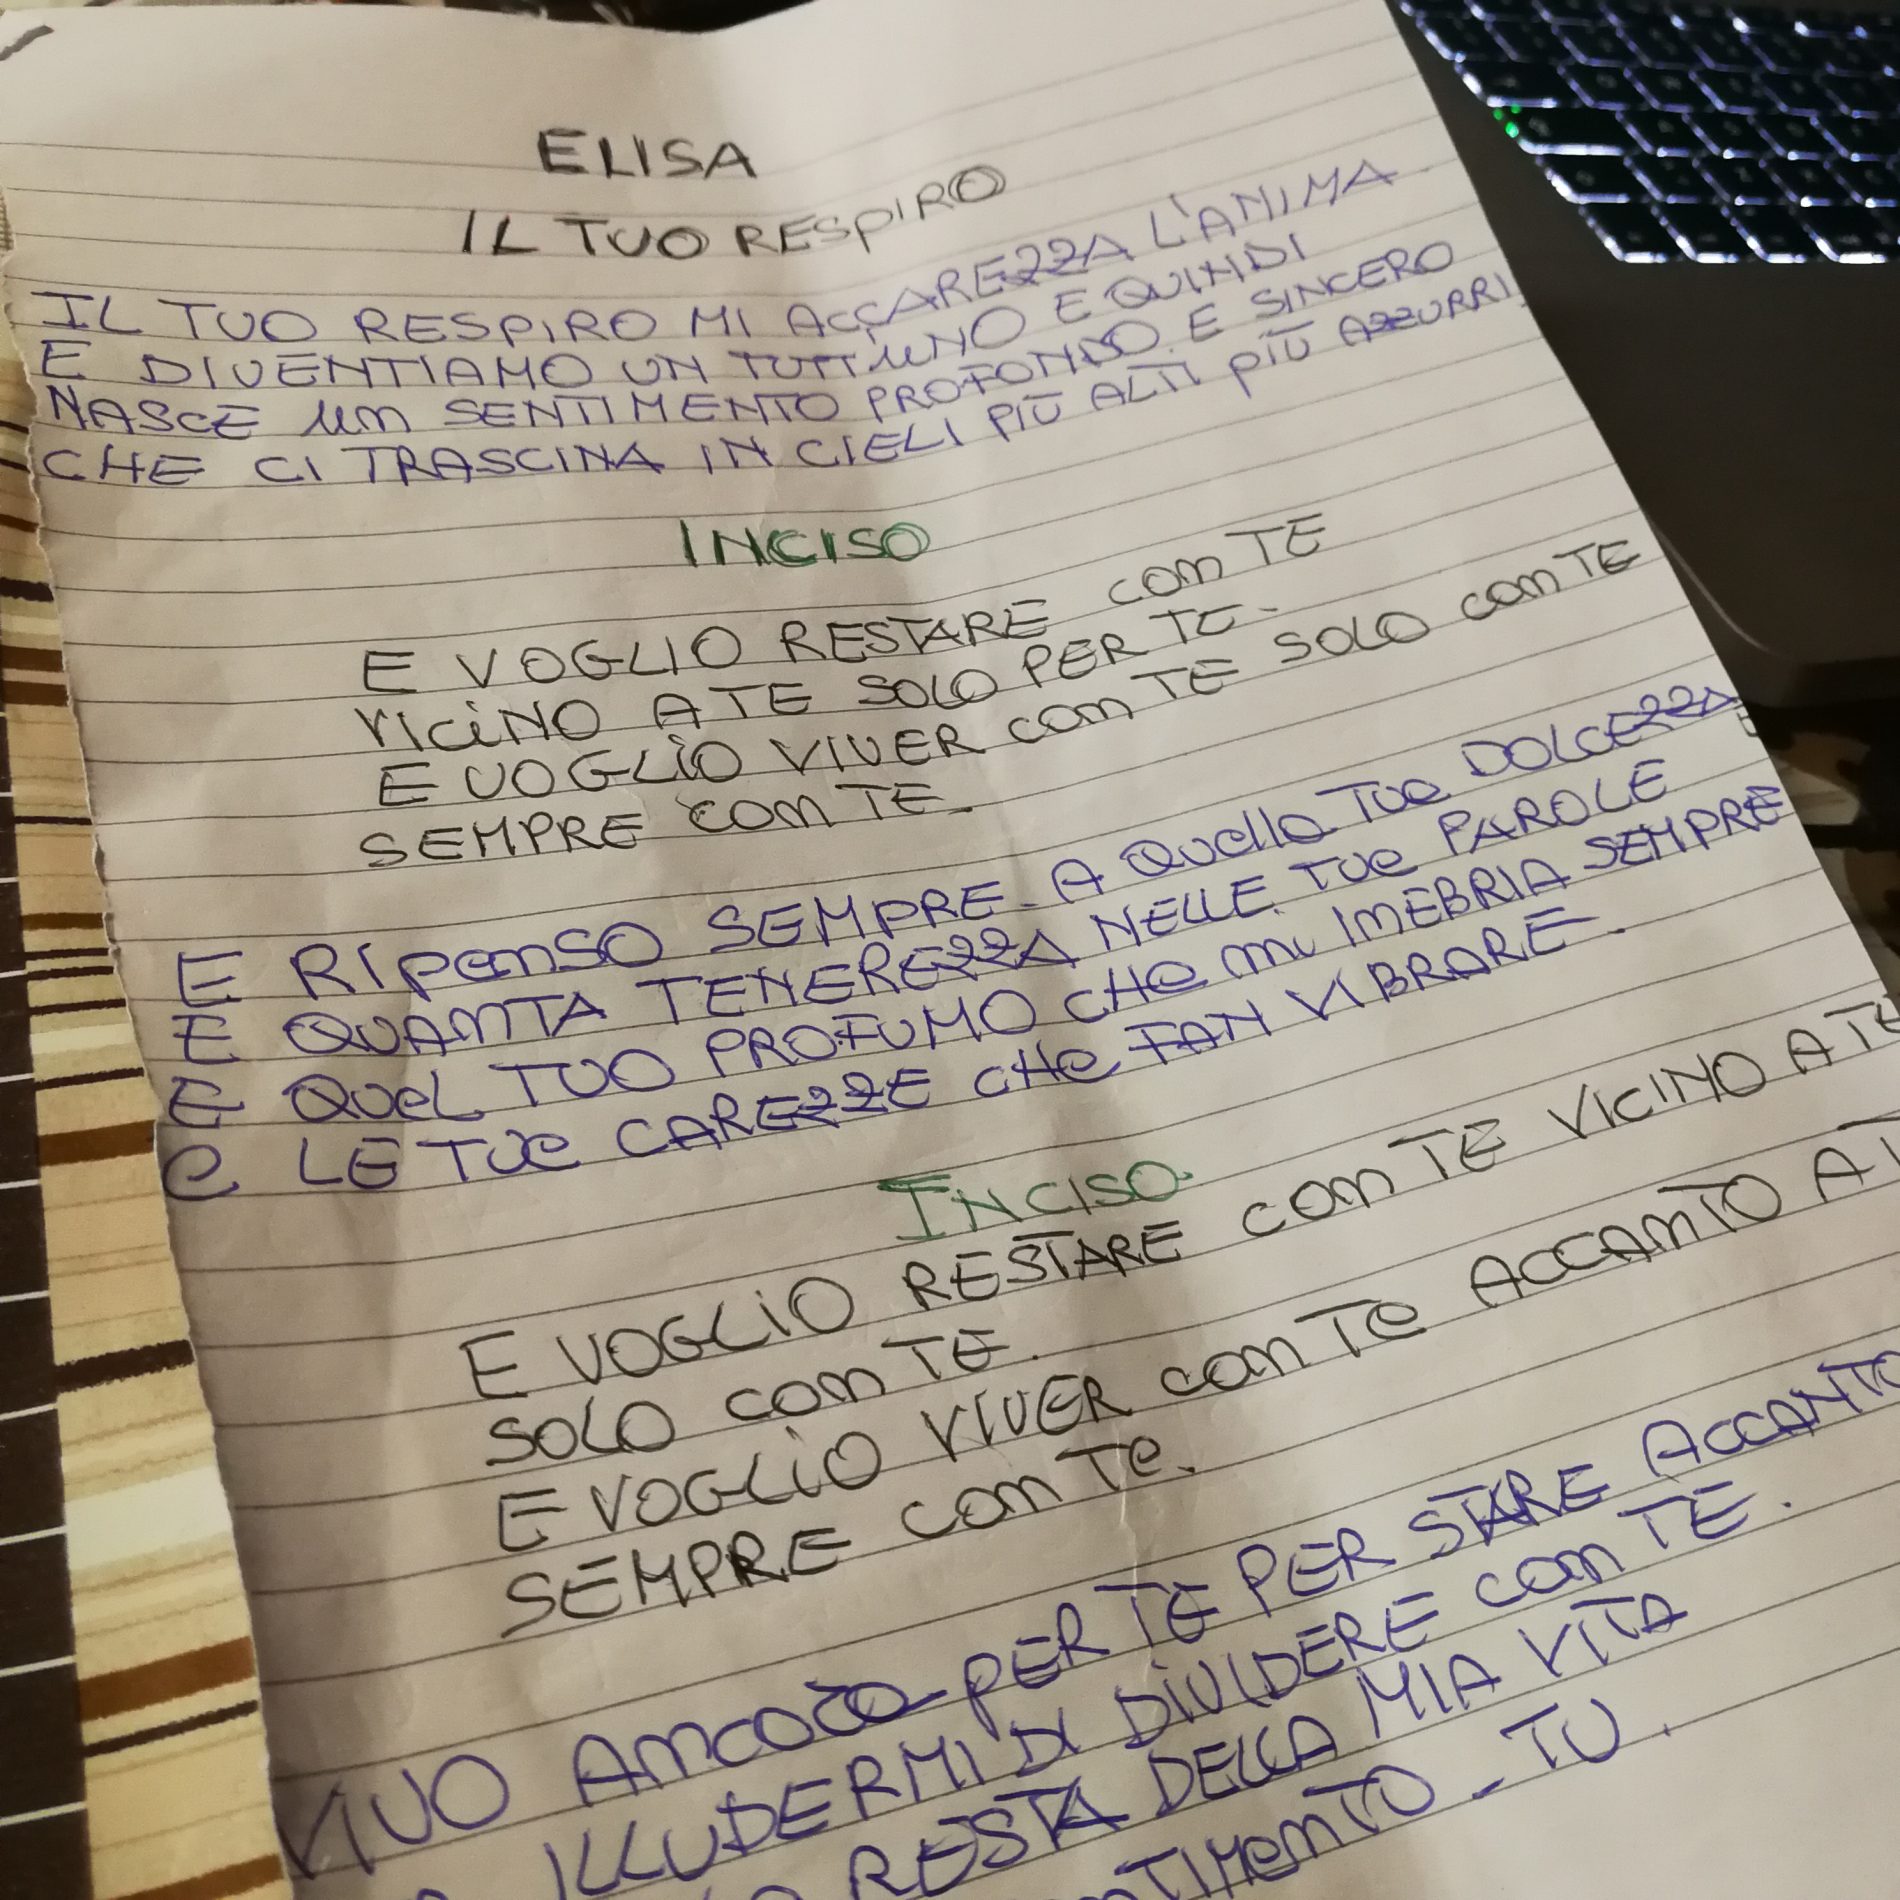 ELISA
IL TUO RESPIRO
IL TUO RESPIRO MI ACCAREZZA L'ANIMA
E DIVENTIAMO UN TUTTUNO E QUINDI
NASCE UN SENTIMENTO PROFONDO E SINCERO
CHE CI TRASCINA IN CIELI PIÙ ALTI PIÙ AZZURRI
INCISO
E VOGLIO RESTARE CON TE
VICINO A TE SOLO PER TE.
E VOGLIO VIVER CON TE SOLO CON TE
SEMPRE CON TE.
E RIPENSO SEMPRE A QUELLA TUA DOLCEZZA
E QUANTA TENEREZZA NELLE TUE PAROLE
E QUEL TUO PROFUMO CHE MI IMEBRIA SEMPRE
E LE TUE CAREZZE CHE FAN VIBRARE.
INCISO.
E VOGLIO RESTARE CON TE VICINO A TE
SOLO CON TE.
E VOGLIO VIVER CON TE ACCANTO A T
SEMPRE CON TE.
VIVO ANCORA PER TE PER STARE ACCANTO
ILLUDERMI DI DIVIDERE CON TE.
RESTA DELLA MIA VITA
TIMENTO - TU.